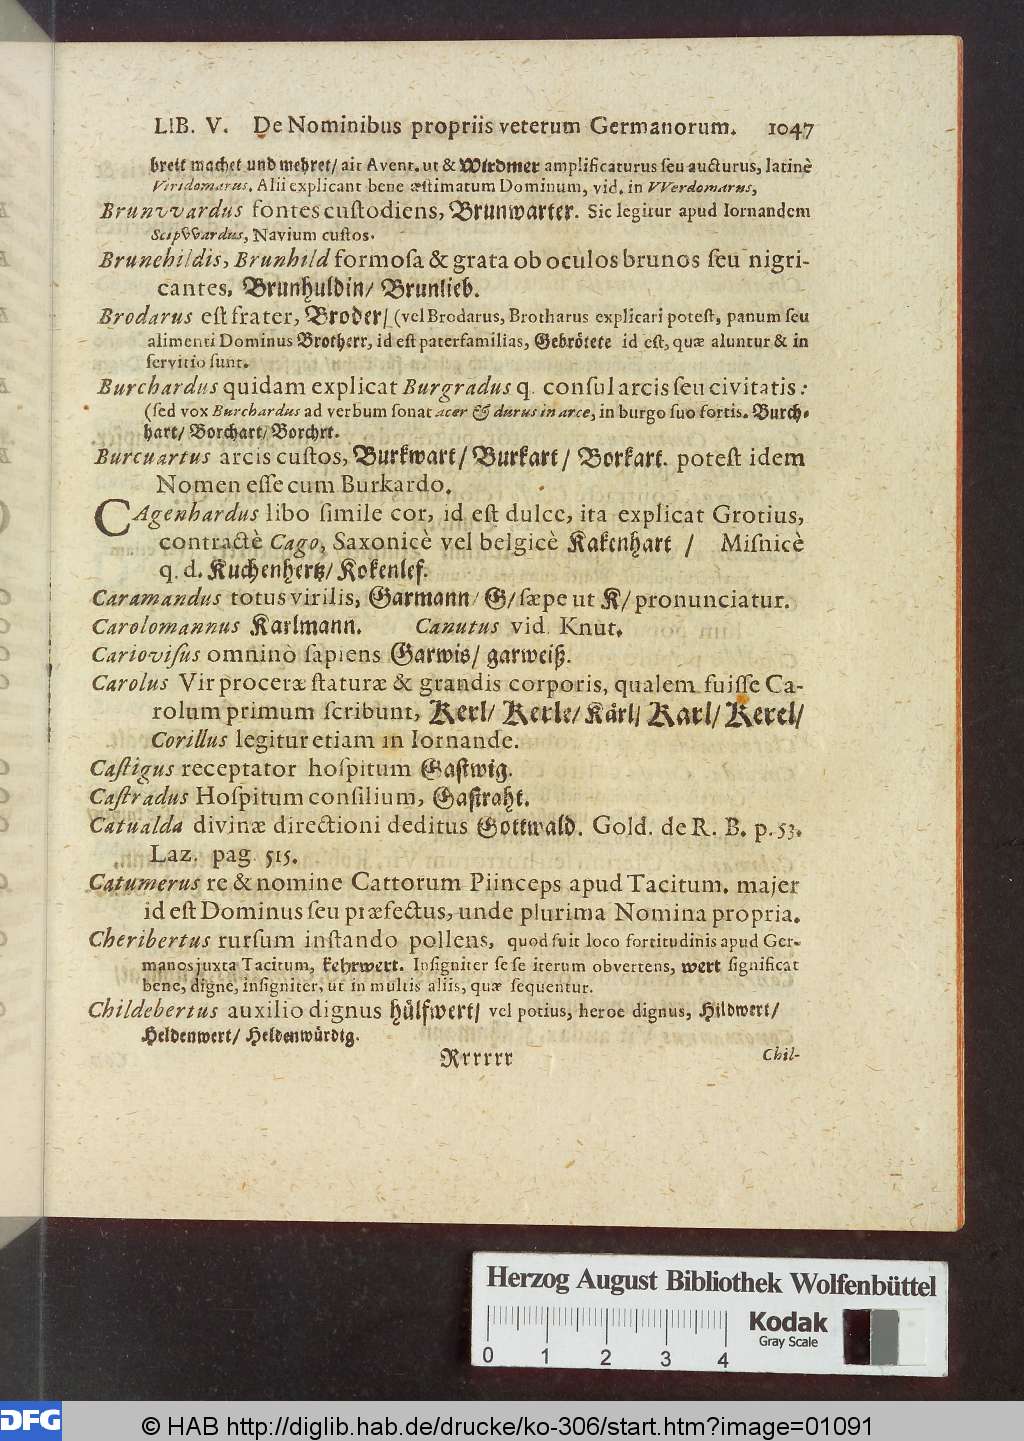 LIB. V. De Nominibus propriis veterum Germanorum. 1047
breit machet und mehret/ ait Avent. ut & Wirdmer amplificaturus seu aucturus, latinè
Viridomarus. Alii explicant bene æstimatum Dominum, vid. in VVerdomarus,
Brunvvardus fontes custodiens, Brunwarter. Sic legitur apud Iornandem
ScipVVardus, Navium custos.
Brunehildis, Brunhild formosa & grata ob oculos brunos seu nigri-
cantes, Brunhuldin/ Brunlieb.
Brodarus est frater, Broder/ (vel Brodarus, Brotharus explicari potest, panum seu
alimenti Dominus Brotherr, id est paterfamilias, Gebrötete id est, quæ aluntur & in
servitio sunt.
Burchardus quidam explicat Burgradus q. consul arcis seu civitatis:
(sed vox Burchardus ad verbum sonat acer & durus in arce, in burgo suo fortis. Burch-
hart/ Borchart/ Borchrt.
Burcuartus arcis custos, Burkwart/ Burkart/ Borkart. potest idem
Nomen esse cum Burkardo.
CAgenhardus libo simile cor, id est dulce, ita explicat Grotius,
contractè Cago, Saxonicè vel belgicè Kakenhart / Misnicè
q. d. Kuchenhertz/ Kokenlef.
Caramandus totus virilis, Garmann/ G/ sæpe ut K/ pronunciatur.
Carolomannus Karlmann. Canutus vid. Knut.
Cariovisus omninò sapiens Garwis/ garweiß.
Carolus Vir proceræ staturæ & grandis corporis, qualem fuisse Ca-
rolum primum scribunt, Kerl/ Kerle/ Kärl/ Karl/ Kerel/
Corillus legitur etiam in Iornande.
Castigus receptator hospitum Gastwig.
Castradus Hospitum consilium, Gastraht.
Catualda divinæ directioni deditus Gottwald. Gold. de R. B. p. 53.
Laz. pag. 515.
Catumerus re & nomine Cattorum Piinceps apud Tacitum. majer
id est Dominus seu præfectus, unde plurima Nomina propria.
Cheribertus rursum instando pollens, quod fuit loco fortitudinis apud Ger-
manos juxta Tacitum, kehrwert. Insigniter se se iterum obvertens, wert significat
bene, digne, insigniter, ut in multis aliis, quæ sequentur.
Childebertus auxilio dignus hülfwert/ vel potius, heroe dignus, Hildwert/
Heldenwert/ Heldenwürdig.
Rrrrrr
Chil-
Herzog August Bibliothek Wolfenbüttel
0 1 2 3 4
Kodak
Gray Scale
DFG
© HAB http://diglib.hab.de/drucke/ko-306/start.htm?image=01091